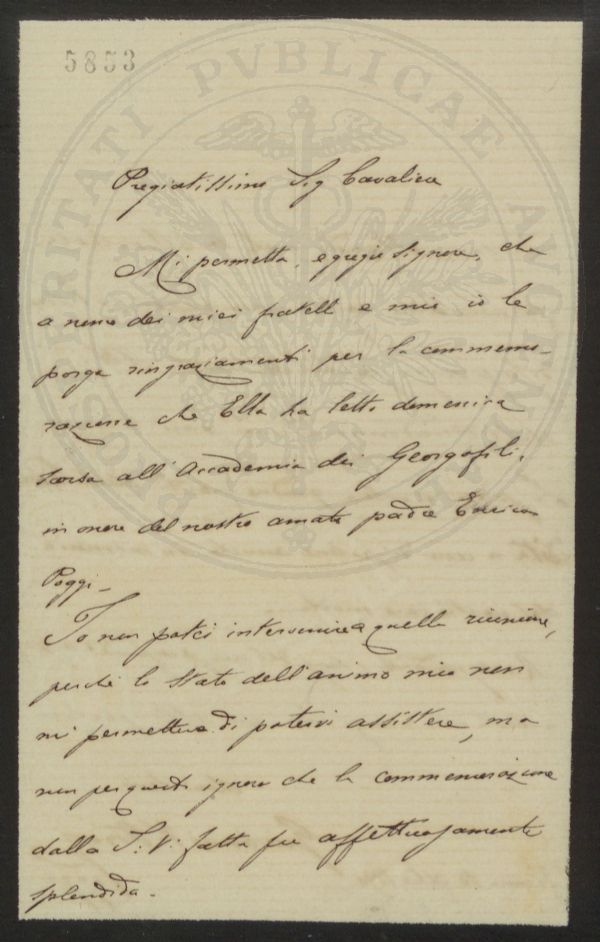 5853
PROSPERITATI PVBLICAE AVGENDAE
Pregiatissimo Sig Cavaliere
Mi permetta, egregio Signore, che
a nome dei miei fratelli e mio io le
porga ringraziamenti per la commemo-
razione che Ella ha letto domenica
scorsa all'Accademia dei Georgofili,
in onore del nostro amato padre Enrico
Poggi_
Io non potei intervenire a quella riunione,
perché lo stato dell'animo mio non
mi permetteva di potervi assistere, ma
non per questo ignoro che la commemorazione
dalla S: V: fatta fu affettuosamente
splendida.